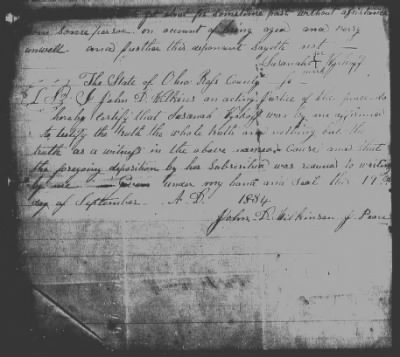 go alone for sometime past without assistance
from some person on account of being aged and very
unwell and further this deponent sayeth not
her
Susanah X Kykoff
mark
The State of Ohio Ross County
I John D. Wilkins an acting Justice of the peace do
hereby certify that Susanah Kykoff was by me affirmed
to testify the truth the whole truth and nothing but the
truth as a witness in the above named Cause and that
the foregoing deposition by her Subscribed was reduced to writing
by me Given under my hand and Seal this 19th
day of September A.D. 1834
John D. Wilkinson J. Peace